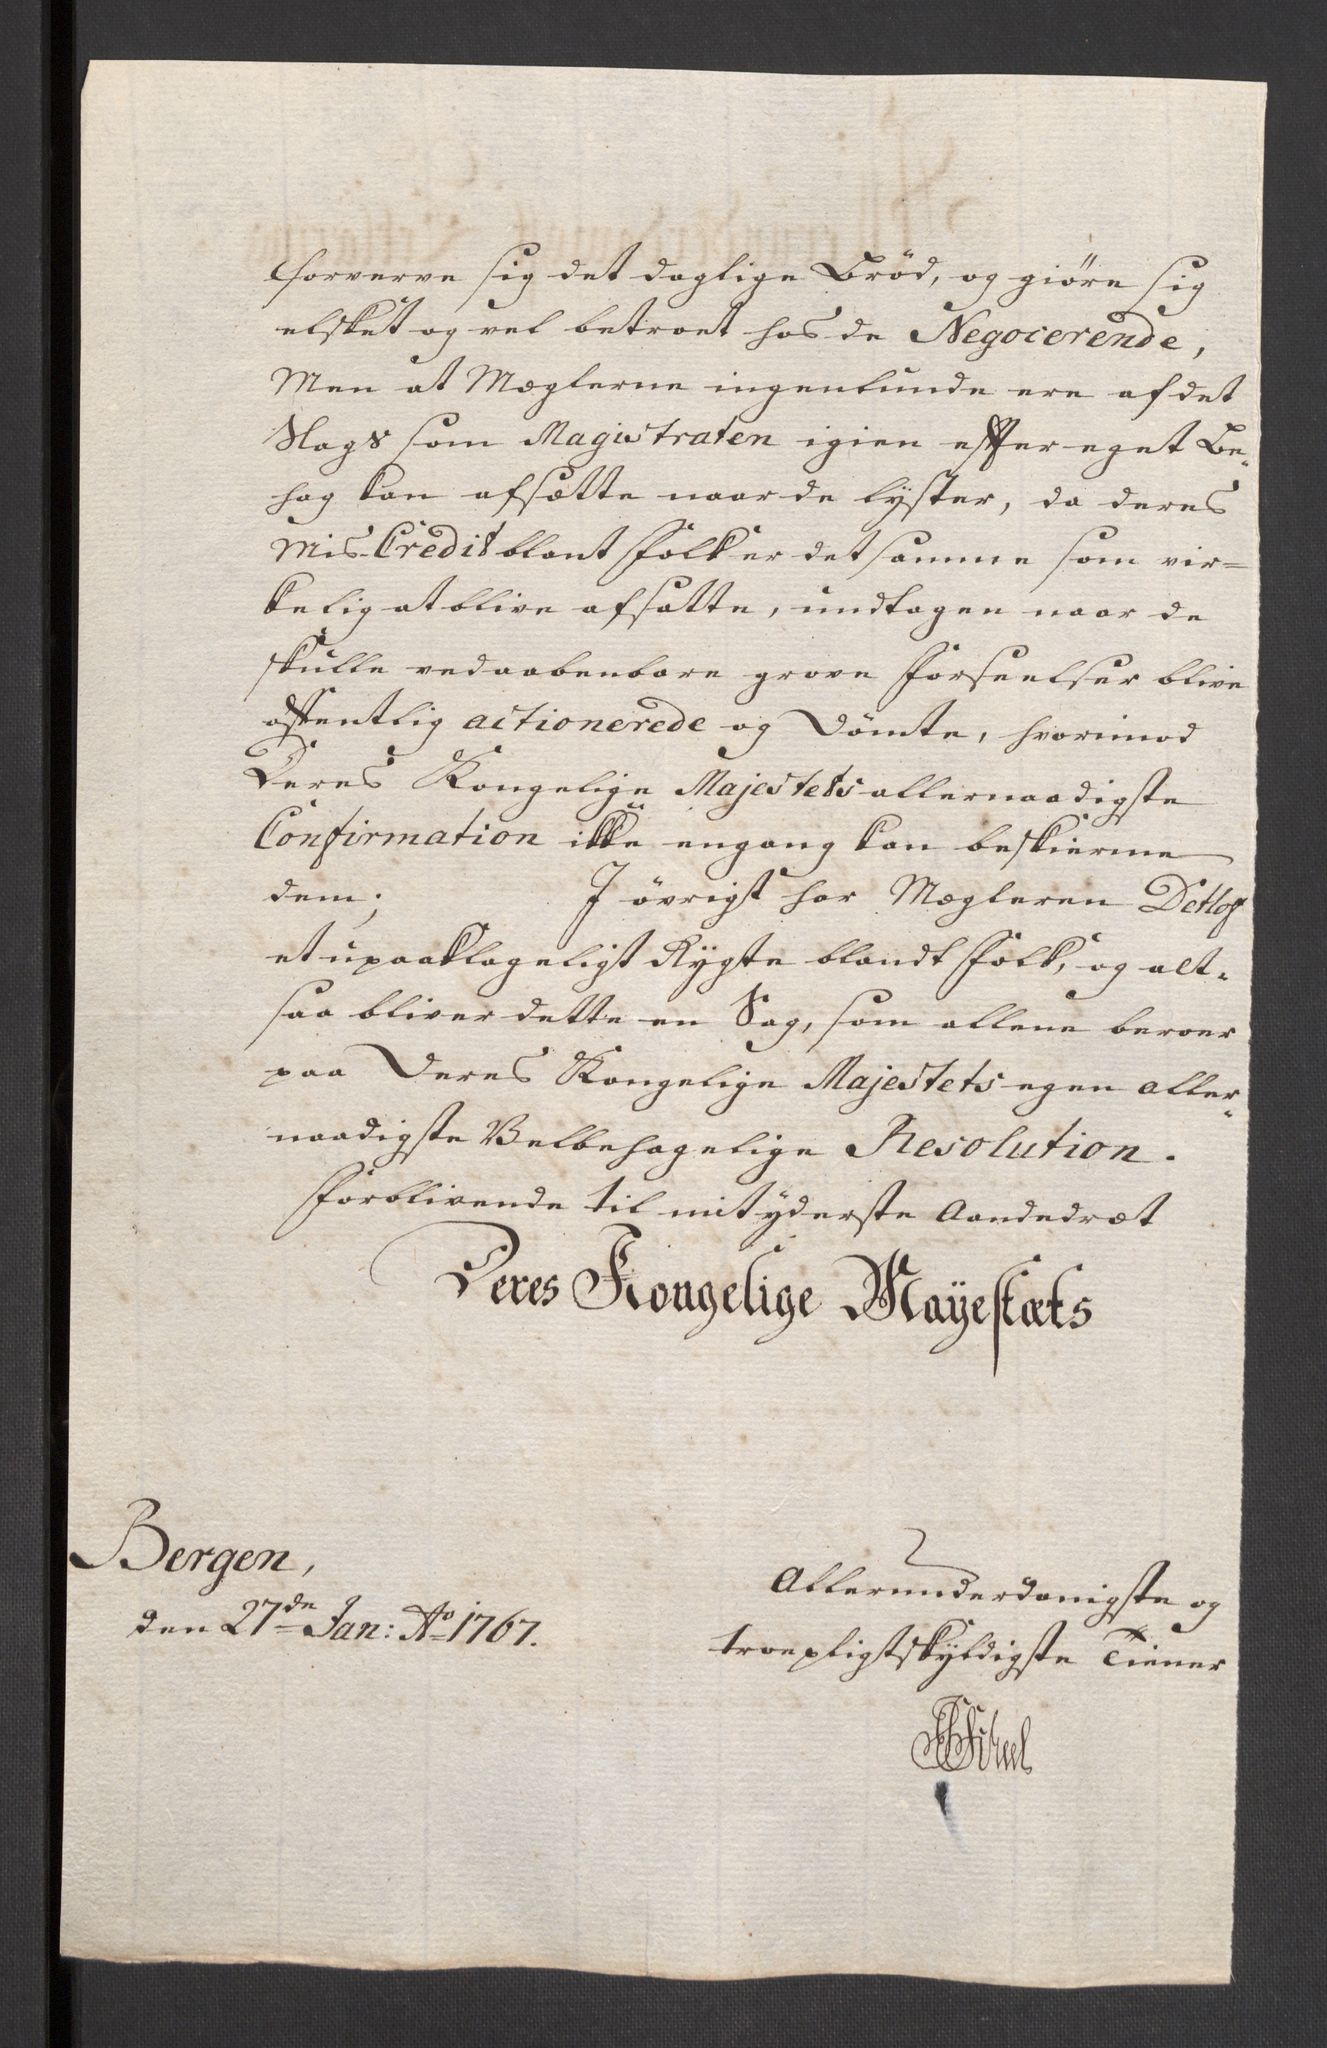 forverve sig det daglige Brød, og giöre sig
elsket og vel betroet hos de Negocerende,
Men at Mæglerne ingenlunde ere af det
Slags som Magistraten igien efter eget Be-
hag kan afsætte naar de lÿster, da deres
Mis-Credit blant Folk er det samme som vir=
kelig at blive afsatte, undtagen naar de
skulle ved aabenbare grove Forseelser blive
offentlig actionerede og Dömte, hvorimod
Deres Kongelige Majestets allernaadigste
Confirmation ikke engang kan beskierme
dem; I övrigt har Mægleren Detlof
et upaaklageligt Rÿgte blandt Folk, og alt-
saa bliver dette en Sag, som allene beroer
paa Deres Kongelige Majestets egen aller-
naadigste Velbehagelige Resolution.
Forblivende til mit yderste Aandedræt
Deres Kongelige Mayestæts
Bergen,
den 27de Jan: Ao 1767.
Allerunderdanigste og
troepligtskyldigste Tiener